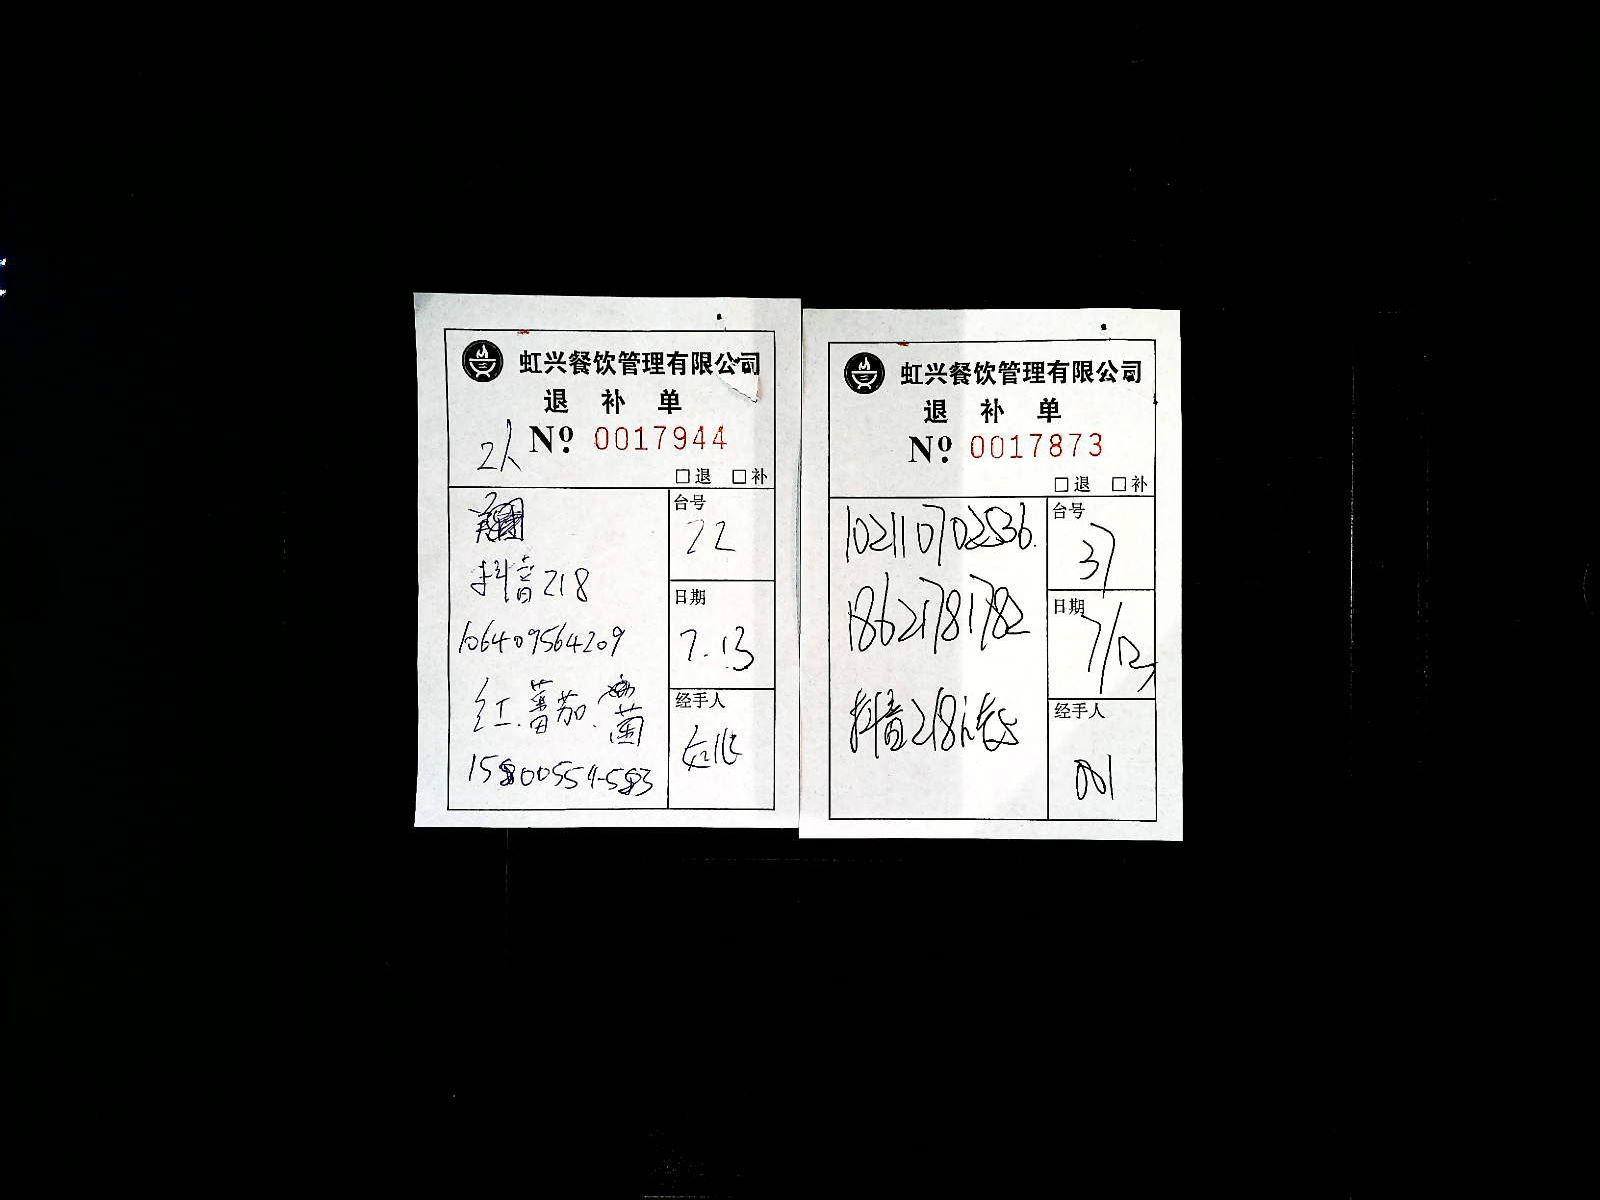 虹兴餐饮管理有限公司
退 补 单
2人 Nº 0017944
□退 □补
抖音218
106409564209
红.番茄.菌
15800554583
台号
22
日期
7.13
经手人
姚
虹兴餐饮管理有限公司
退 补 单
Nº 0017873
□退 □补
102110702536.
18621781782
抖音218
台号
37
日期
7/12
经手人
001